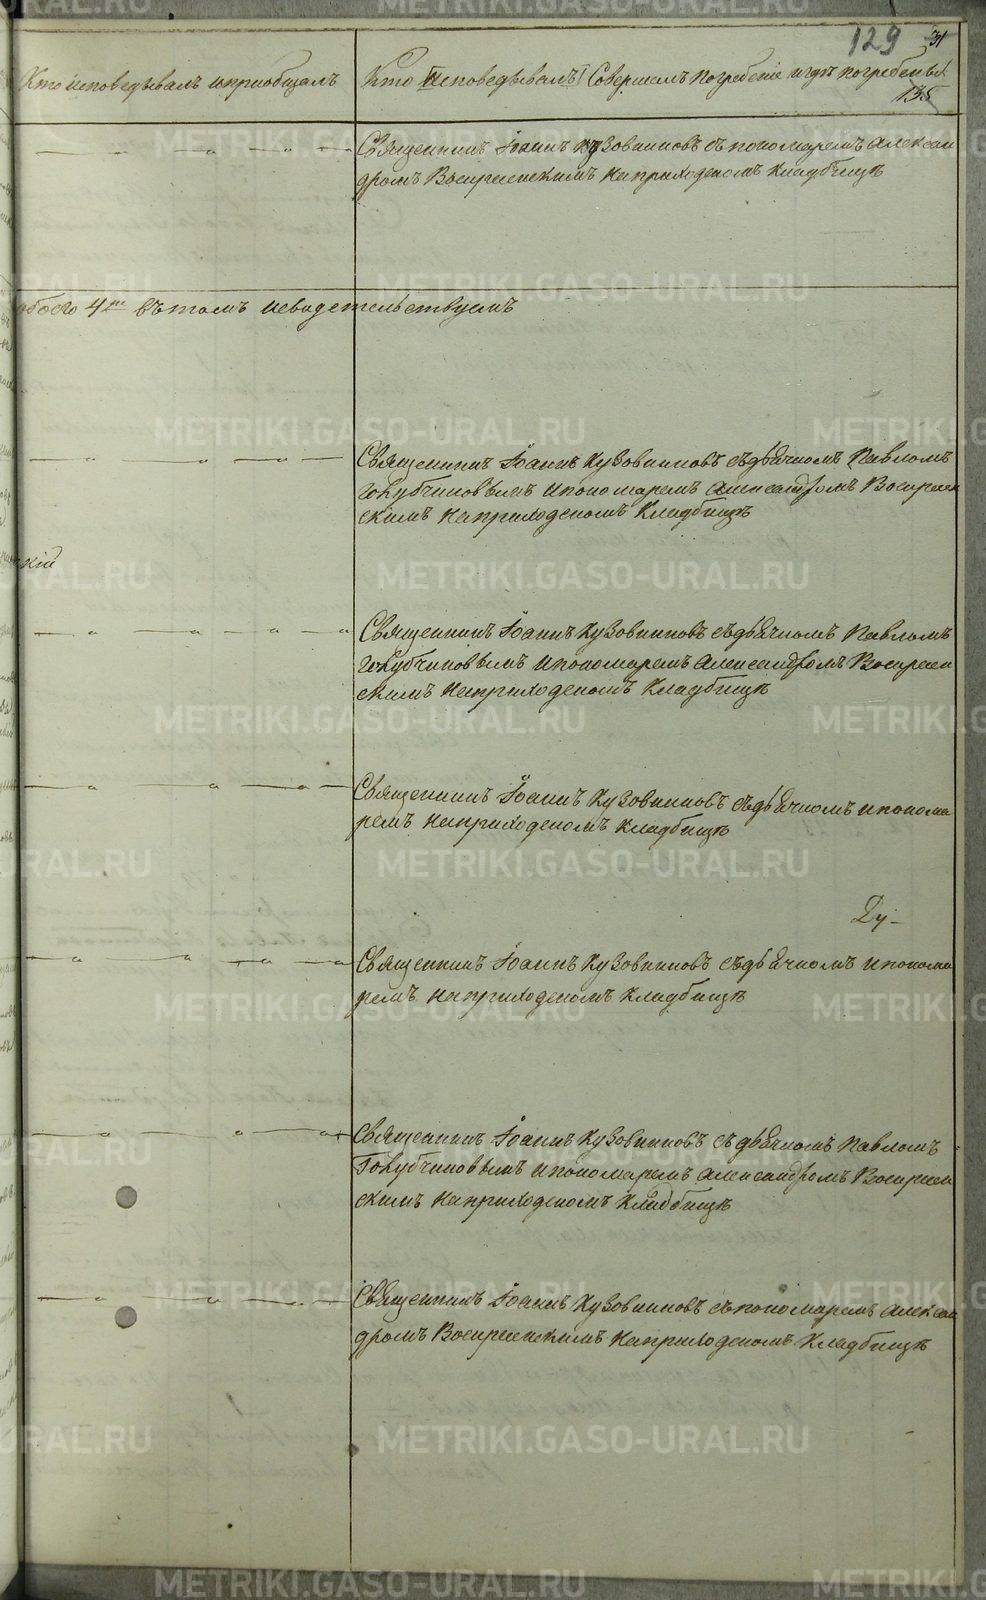 129 31
Кто исповедывалъ и приобщалъ
Кто Исповедывалъ Совершалъ погребение и где погребены
135
Священникъ Іоаннъ Кузовниковъ съ пономаремъ Алексан
дромъ Воскресенскимъ на приходскомъ кладбищѣ
обоего 4 въ томъ свидетельствуемъ
Священникъ Іоаннъ Кузовниковъ съ дьячкомъ Павломъ
Голубчиковымъ и пономаремъ Александромъ Воскресен
скимъ на приходскомъ кладбищѣ
кій
Священникъ Іоаннъ Кузовниковъ съ дьячкомъ Павломъ
Голубчиковымъ и пономаремъ Александромъ Воскресен
скимъ на приходскомъ кладбищѣ
Священникъ Іоаннъ Кузовниковъ съ дьячкомъ и понома
ремъ на приходскомъ кладбищѣ
Ду-
Священникъ Іоаннъ Кузовниковъ съ дьячкомъ и понома
ремъ на приходскомъ кладбищѣ
Священникъ Іоаннъ Кузовниковъ съ дьячкомъ Павломъ
Голубчиковымъ и пономаремъ Александромъ Воскресен
скимъ на приходскомъ кладбищѣ
Священникъ Іоаннъ Кузовниковъ съ пономаремъ Алексан
дромъ Воскресенскимъ на приходскомъ кладбищѣ
METRIKI.GASO-URAL.RU